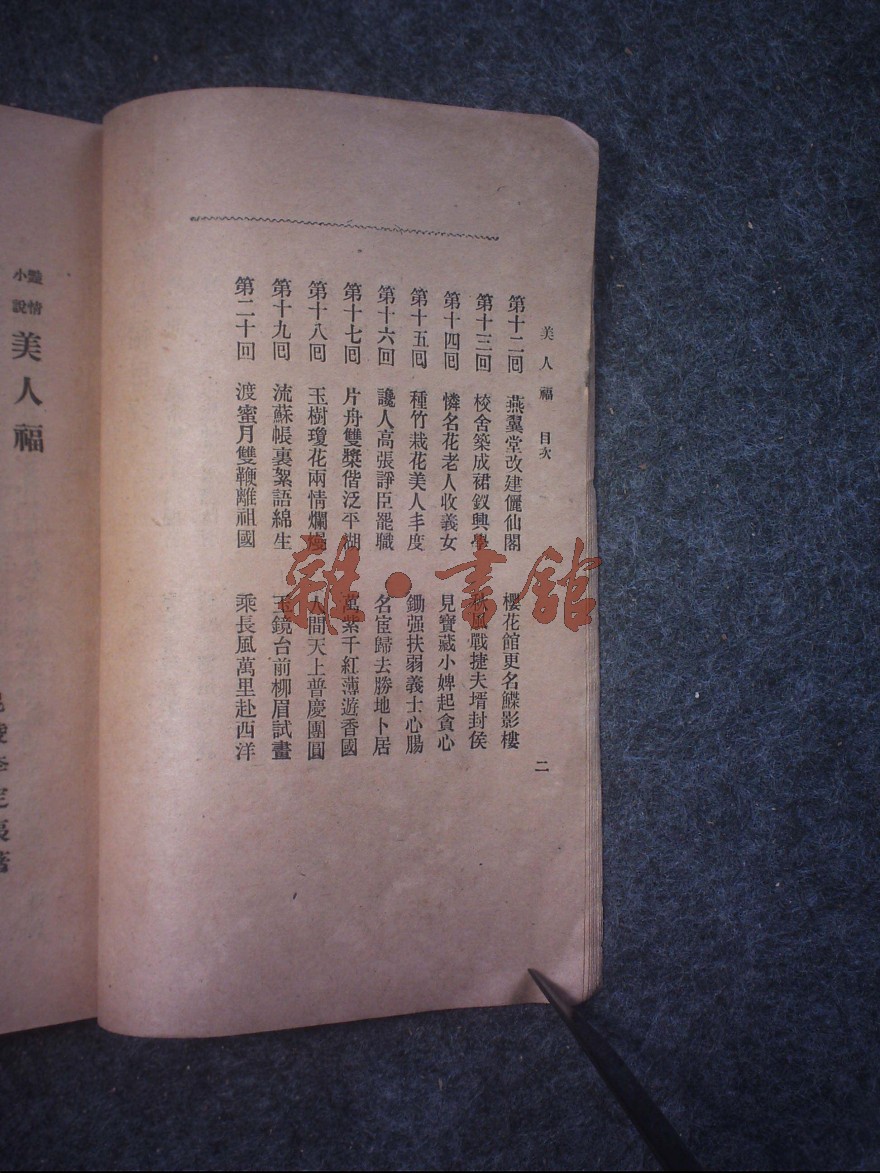 美人福　目次　二
第十二囘　燕翼堂改建儷仙閣　櫻花館更名鰈影樓
第十三回　校舍築成裙釵興學　秋風戰捷夫壻封侯
第十四囘　憐名花老人收義女　見寶藏小婢起貪心
第十五囘　種竹栽花美人丰度　鋤强扶弱義士心腸
第十六回　讒人高張諍臣罷職　名宦歸去勝地卜居
第十七囘　片舟雙槳偕泛平湖　萬紫千紅薄遊香國
第十八囘　玉樹瓊花兩情爛熳　人間天上普慶團圓
第十九囘　流蘇帳裏絮語綿生　玉鏡台前柳眉試畫
第二十回　渡蜜月雙鞭離祖國　乘長風萬里赴西洋
艷情小說
美人福
李定夷著
雜·書館